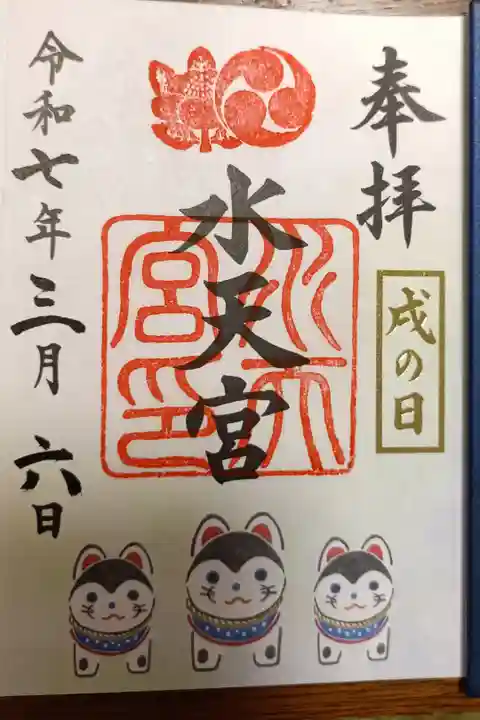 奉拝
戌の日
水天宮
水天宮印
令和七年三月六日